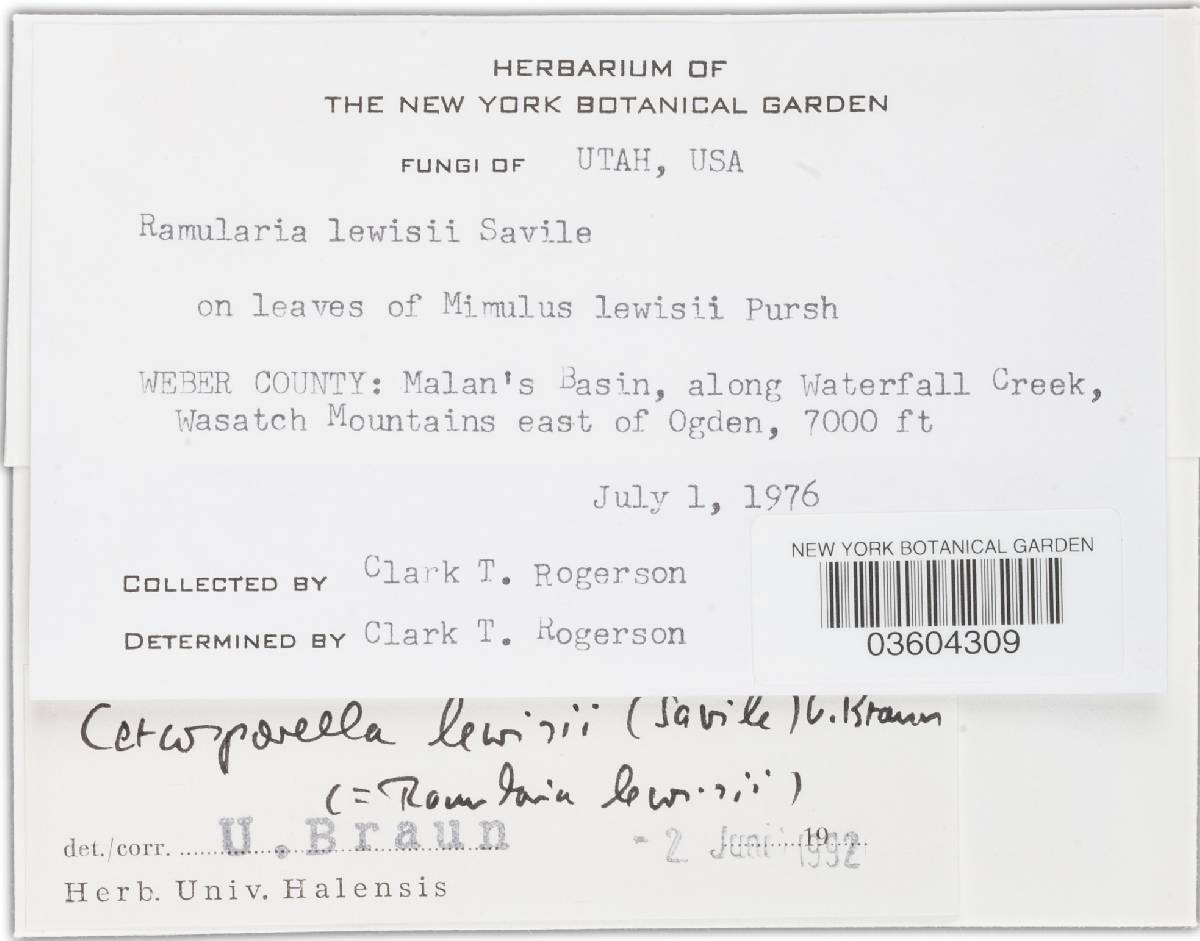 HERBARIUM OF
THE NEW YORK BOTANICAL GARDEN
FUNGI OF UTAH, USA
Ramularia lewisii Savile
on leaves of Mimulus lewisii Pursh
WEBER COUNTY: Malan's Basin, along Waterfall Creek,
Wasatch Mountains east of Ogden, 7000 ft
July 1, 1976
COLLECTED BY Clark T. Rogerson
DETERMINED BY Clark T. Rogerson
NEW YORK BOTANICAL GARDEN
03604309
Cercosporella lewisii (Savile) U. Braun
(= Ramularia lewisii)
det./corr. U. Braun - 2 Juni 19 1992
Herb. Univ. Halensis